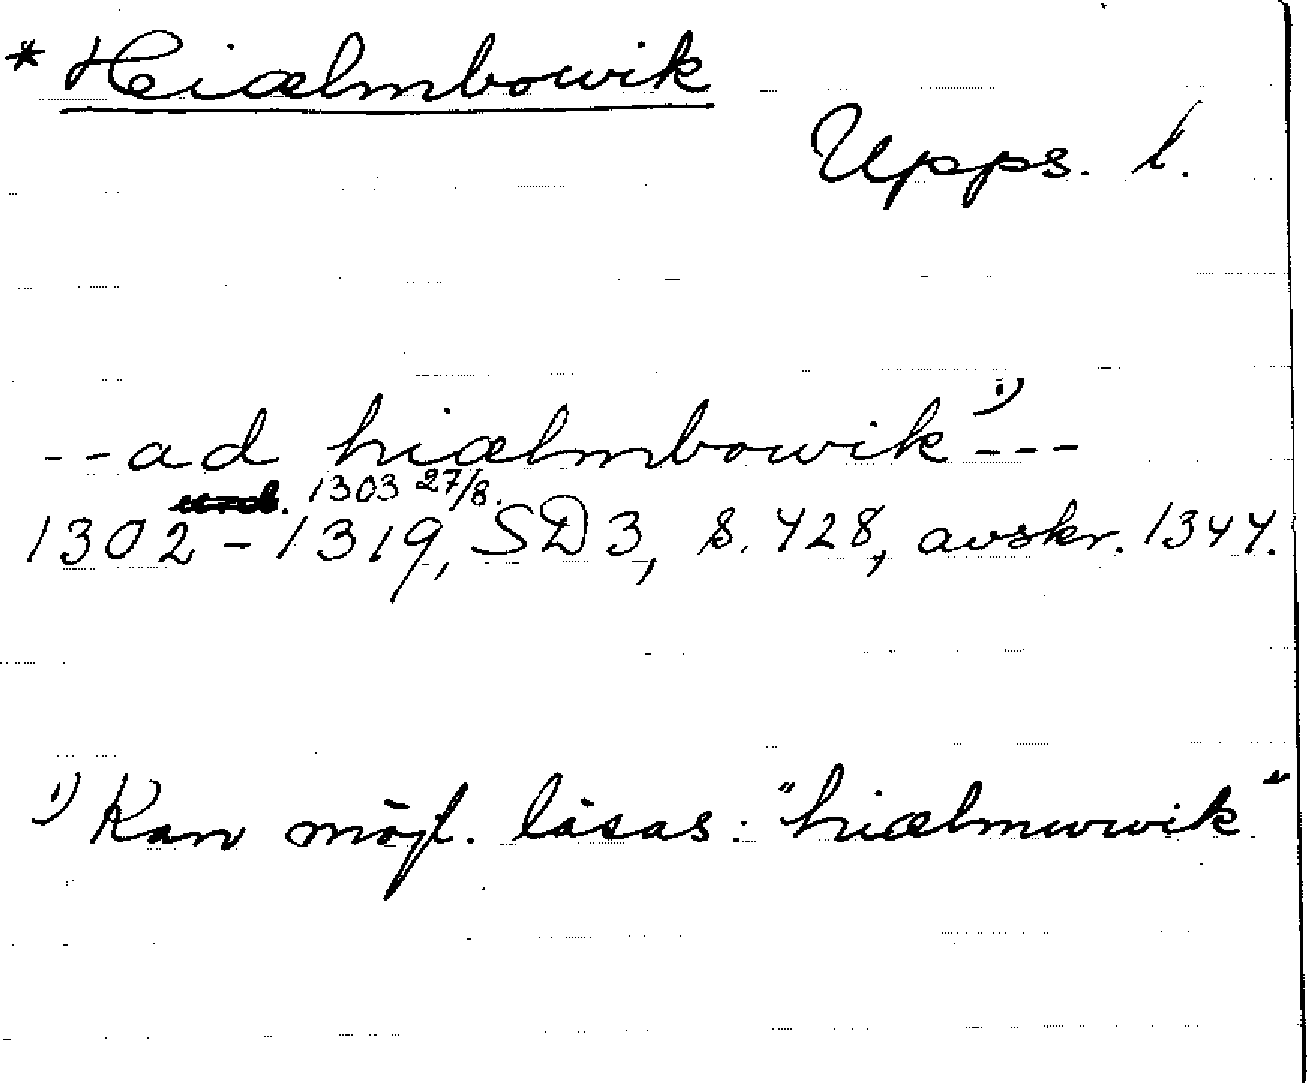 * Hiælmbowik
Upps. l.
--ad hiælmbowik¹⁾---
1303 27/8.
1302-1319, SD 3, s. 428, avskr. 1344.
¹⁾ Kan möjl. läsas: "hiælmwwik"